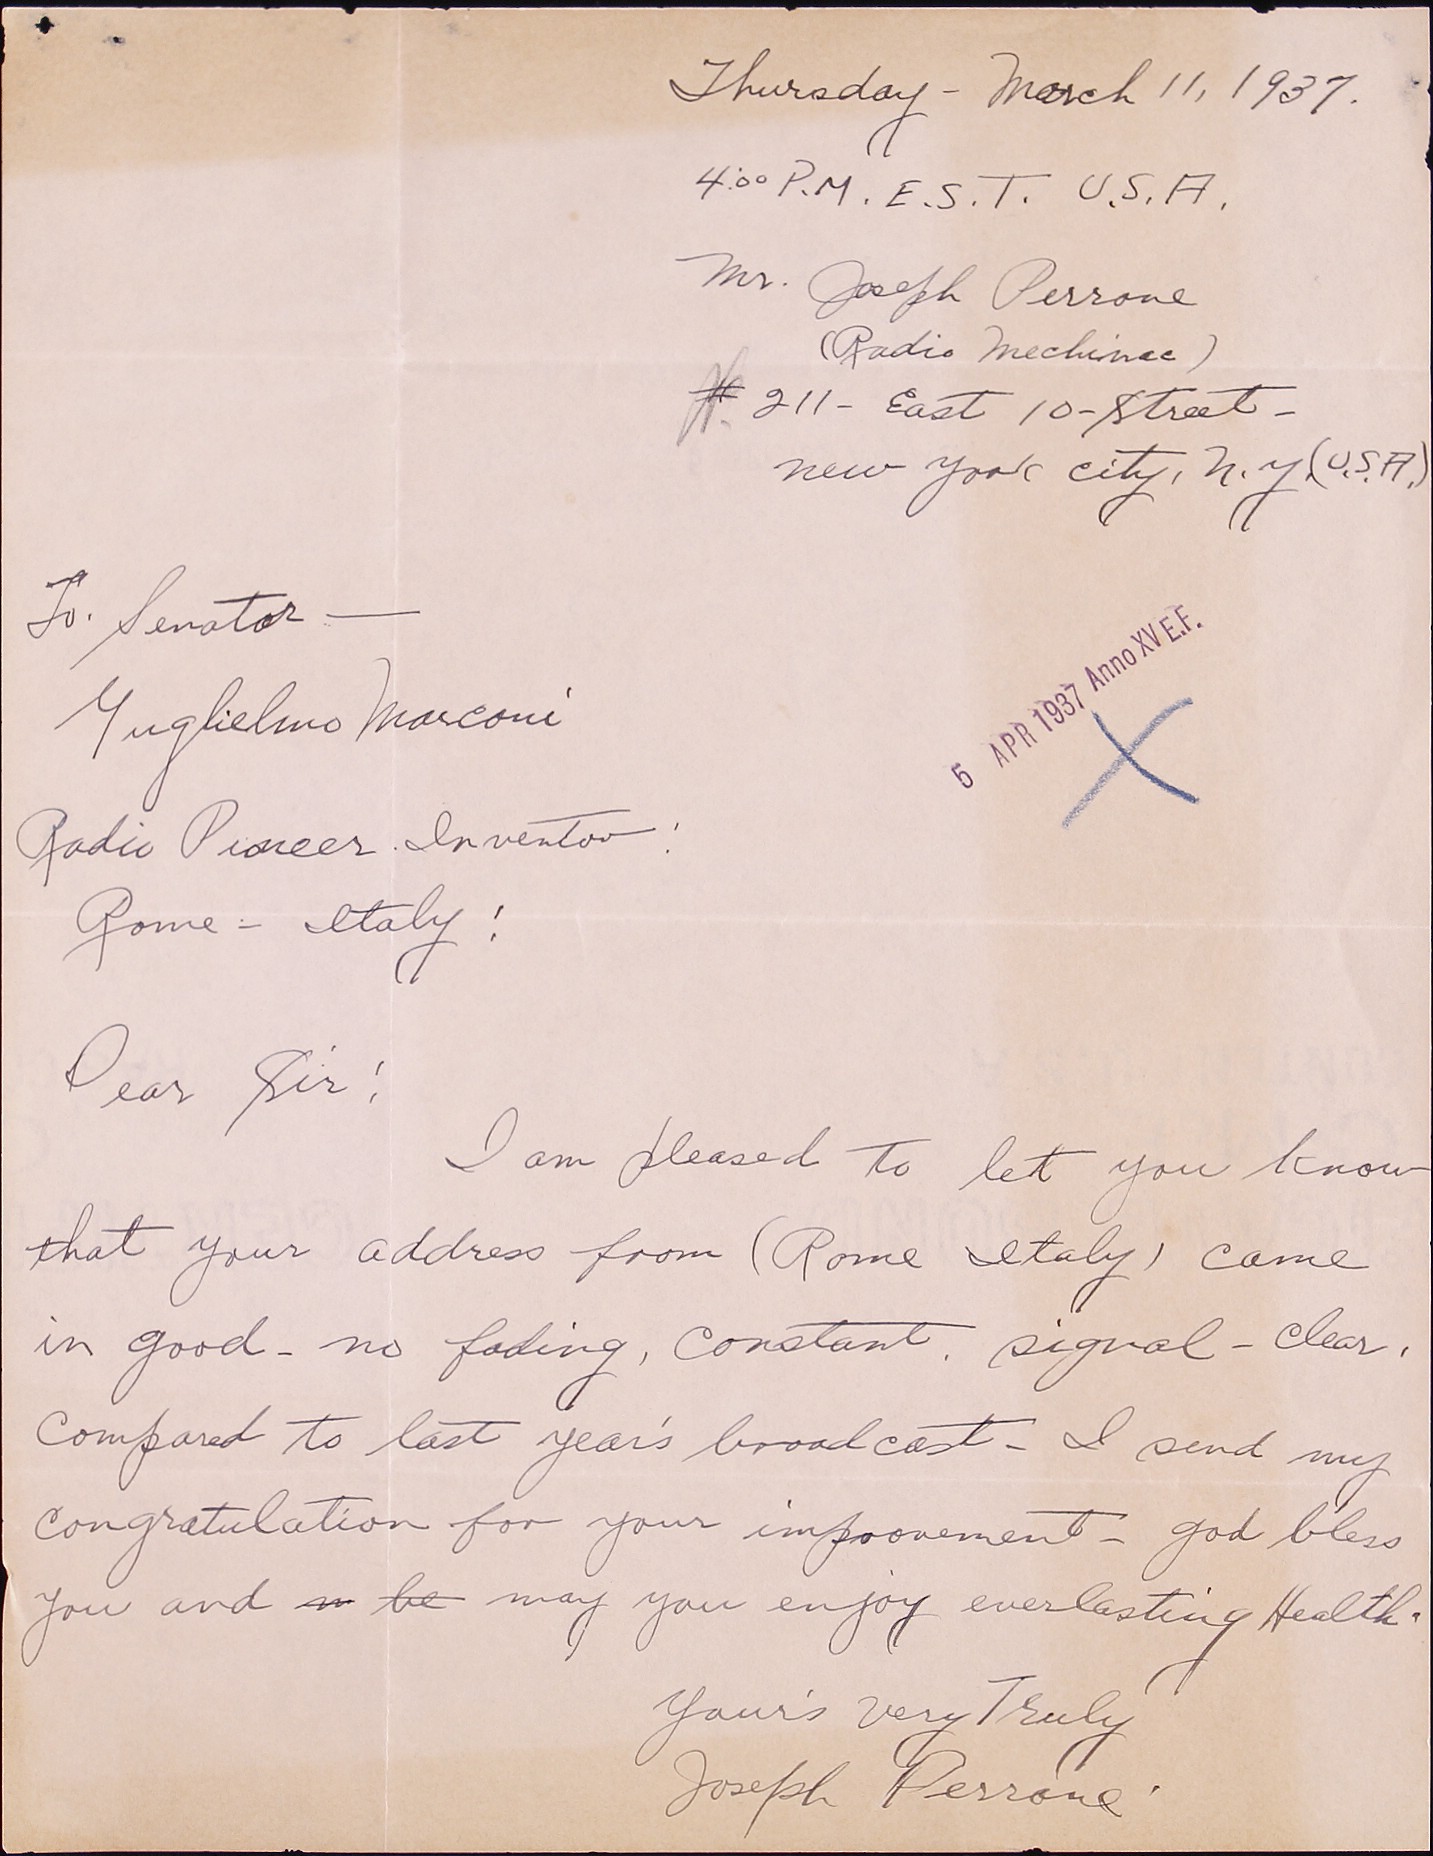 Thursday - March 11, 1937.
4:00 P.M. E.S.T. U.S.A.
Mr. Joseph Perrone
(Radio Mechinac)
# 211 - East 10 - Street -
New York City, N.Y. (U.S.A.)
To. Senator —
Guglielmo Marconi
5 APR 1937 Anno XV E.F.
Radio Pioneer Inventor!
Rome - Italy!
Dear Sir!
I am pleased to let you know
that your address from (Rome Italy) came
in good - no fading, constant. signal - clear.
Compared to last year's broadcast - I send my
congratulation for your improovement - God bless
you and m be may you enjoy everlasting Health.
Your's very Truly
Joseph Perrone.